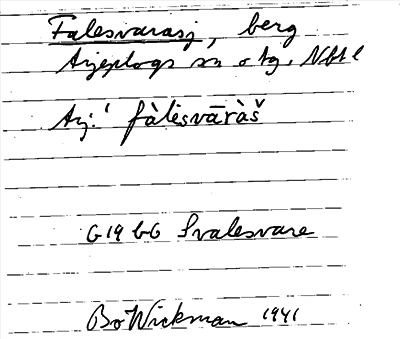 Falesvarasj, berg
Arjeplogs sn o tg. Nbtl
Arj.: fàlèsvāràš
G19 bb Svalesvare
Bo Wickman 1941